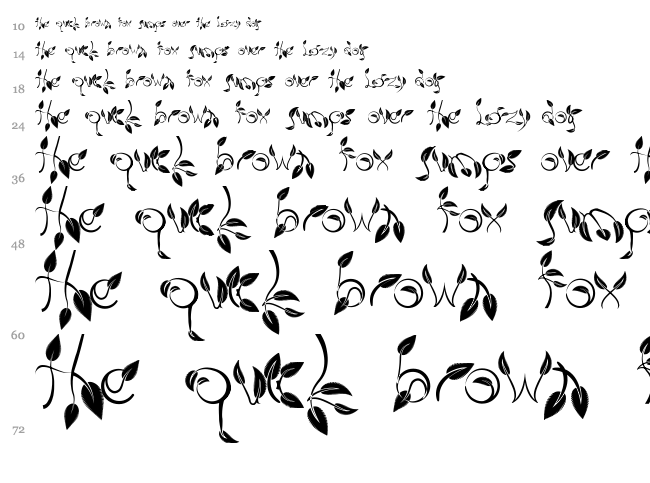 10 the quick brown fox jumps over the lazy dog
14 the quick brown fox jumps over the lazy dog
18 the quick brown fox jumps over the lazy dog
24 the quick brown fox jumps over the lazy dog
36 the quick brown fox jumps over
48 the quick brown fox jump
60 the quick brown fox
72 the quick brown